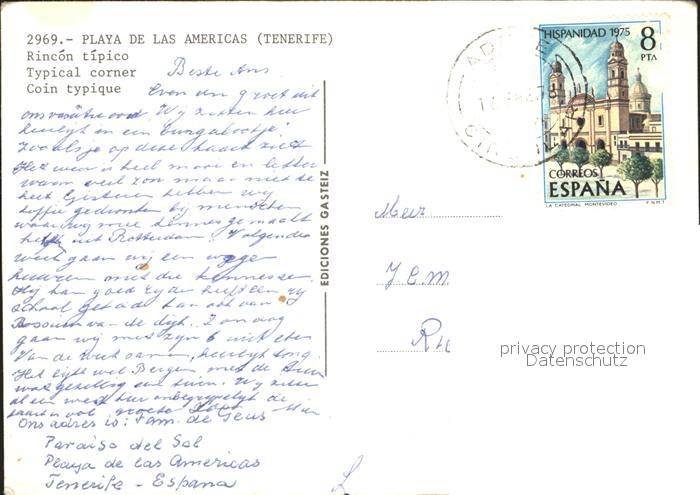 2969.- PLAYA DE LAS AMERICAS (TENERIFE)
Rincón típico
Typical corner
Coin typique
Beste Ans.
Even een groet uit
ons vacantie oord. Wij zitten hier
heerlijk in een bungalowtje.
Zo als je op deze kaart ziet
Het weer is heel mooi en lekker
warm veel zon maar niet te
heet. Gisteren hebben wij
koffie gedronken bij menschen
waar wij mee kennis gemaakt
uit Rotterdam. Volgende
week gaan wij een
huren met die kennissen
Hij kan goed rijden heeft een rij
school gehad
van de dijk. Zondag
gaan wij met zijn 6 uit eten
Van de week samen, heerlijk
Het lijkt wel Bergen, met de
was gezellig een tuin. Wij zitten
al een week hier onbegrijpelijk die
groeten
Ons adres is: Fam. de Geus
Paraiso del Sol
Playa de las Americas
Tenerife - España
EDICIONES GASTEIZ
HISPANIDAD 1975
8
PTA
CORREOS
ESPAÑA
LA CATEDRAL MONTEVIDEO F.N.M.T
Mevr
privacy protection
Datenschutz